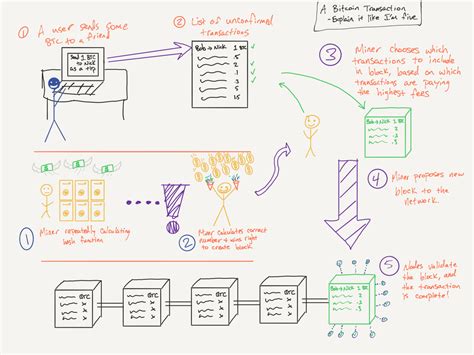 A Bitcoin Transaction
-Explain it like I'm five
1 A user sends some
BTC to a friend
Send 1 BTC
to Nick
as a tip
2 List of unconfirmed
transactions
Bob → Nick 1 BTC
.5
.2
.1
.3
.5
.15
3 Miner chooses which
transactions to include
in block, based on which
transactions are paying
the highest fees
Bob → Nick 1 BTC
.5
4 Miner proposes new
block to the network.
1 Miner repeatedly calculating
hash function
2 Miner calculates correct
number & wins right
to create block
5 Nodes validate
the block, and
the transaction
is complete!
BTC
x
x
x
BTC
x
x
x
BTC
x
x
x
BTC
x
x
x
Bob → Nick 1 BTC
.5